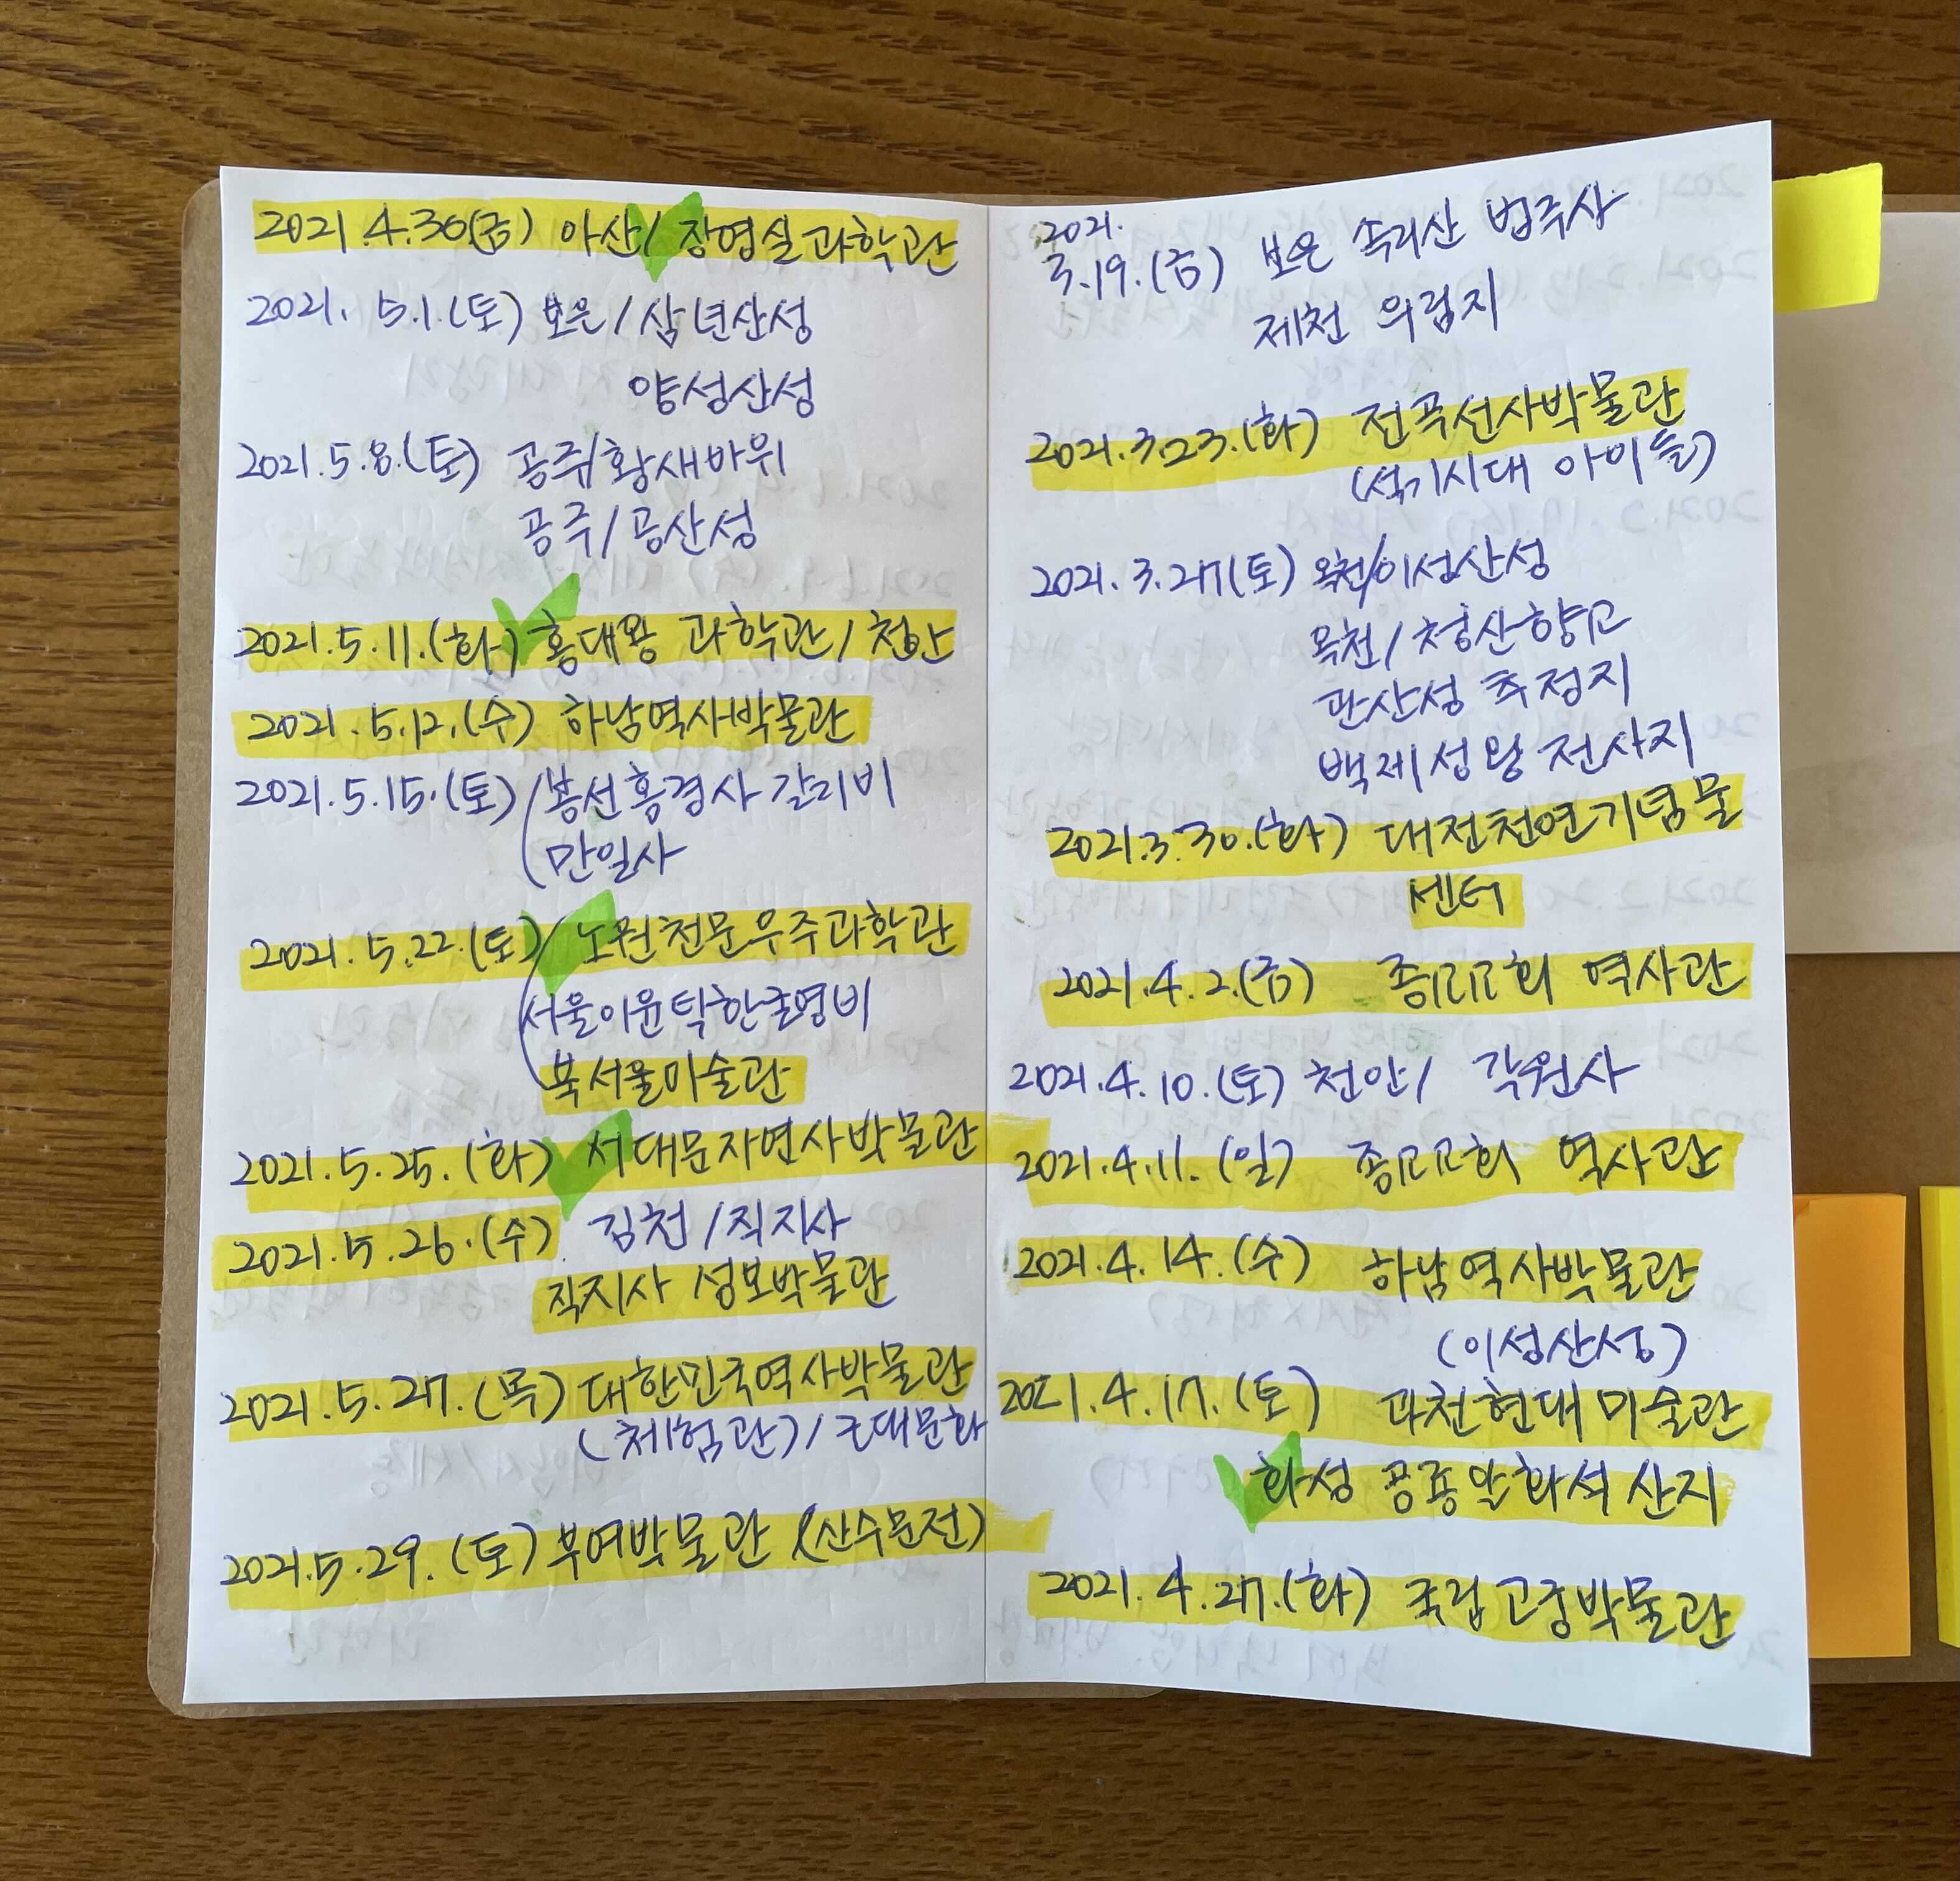 2021.4.30(금) 아산/장영실과학관
2021. 5.1.(토) 보은/삼년산성
양성산성
2021.5.8.(토) 공주/황새바위
공주/공산성
2021.5.11.(화) 홍대용 과학관/천안
2021.5.12.(수) 하남역사박물관
2021.5.15.(토) 봉선홍경사 갈기비
만일사
2021.5.22.(토) 노원천문우주과학관
서울이윤탁한글영비
북서울미술관
2021.5.25.(화) 서대문자연사박물관
2021.5.26.(수) 김천/직지사
직지사 성보박물관
2021.5.27.(목) 대한민국역사박물관
(체험관)/근대문화
2021.5.29.(토) 부여박물관 (산수문전)
2021.
3.19.(금) 보은 속리산 법주사
제천 의림지
2021.3.23.(화) 전곡선사박물관
(석기시대 아이들)
2021.3.27(토) 옥천/이성산성
옥천/청산향교
관산성 추정지
백제성왕 전사지
2021.3.30.(화) 대전천연기념물
센터
2021.4.2.(금) 종교교회 역사관
2021.4.10.(토) 천안/ 각원사
2021.4.11.(일) 종교교회 역사관
2021.4.14.(수) 하남역사박물관
(이성산성)
2021.4.17.(토) 과천현대미술관
화성 공룡알화석산지
2021.4.27.(화) 국립고궁박물관